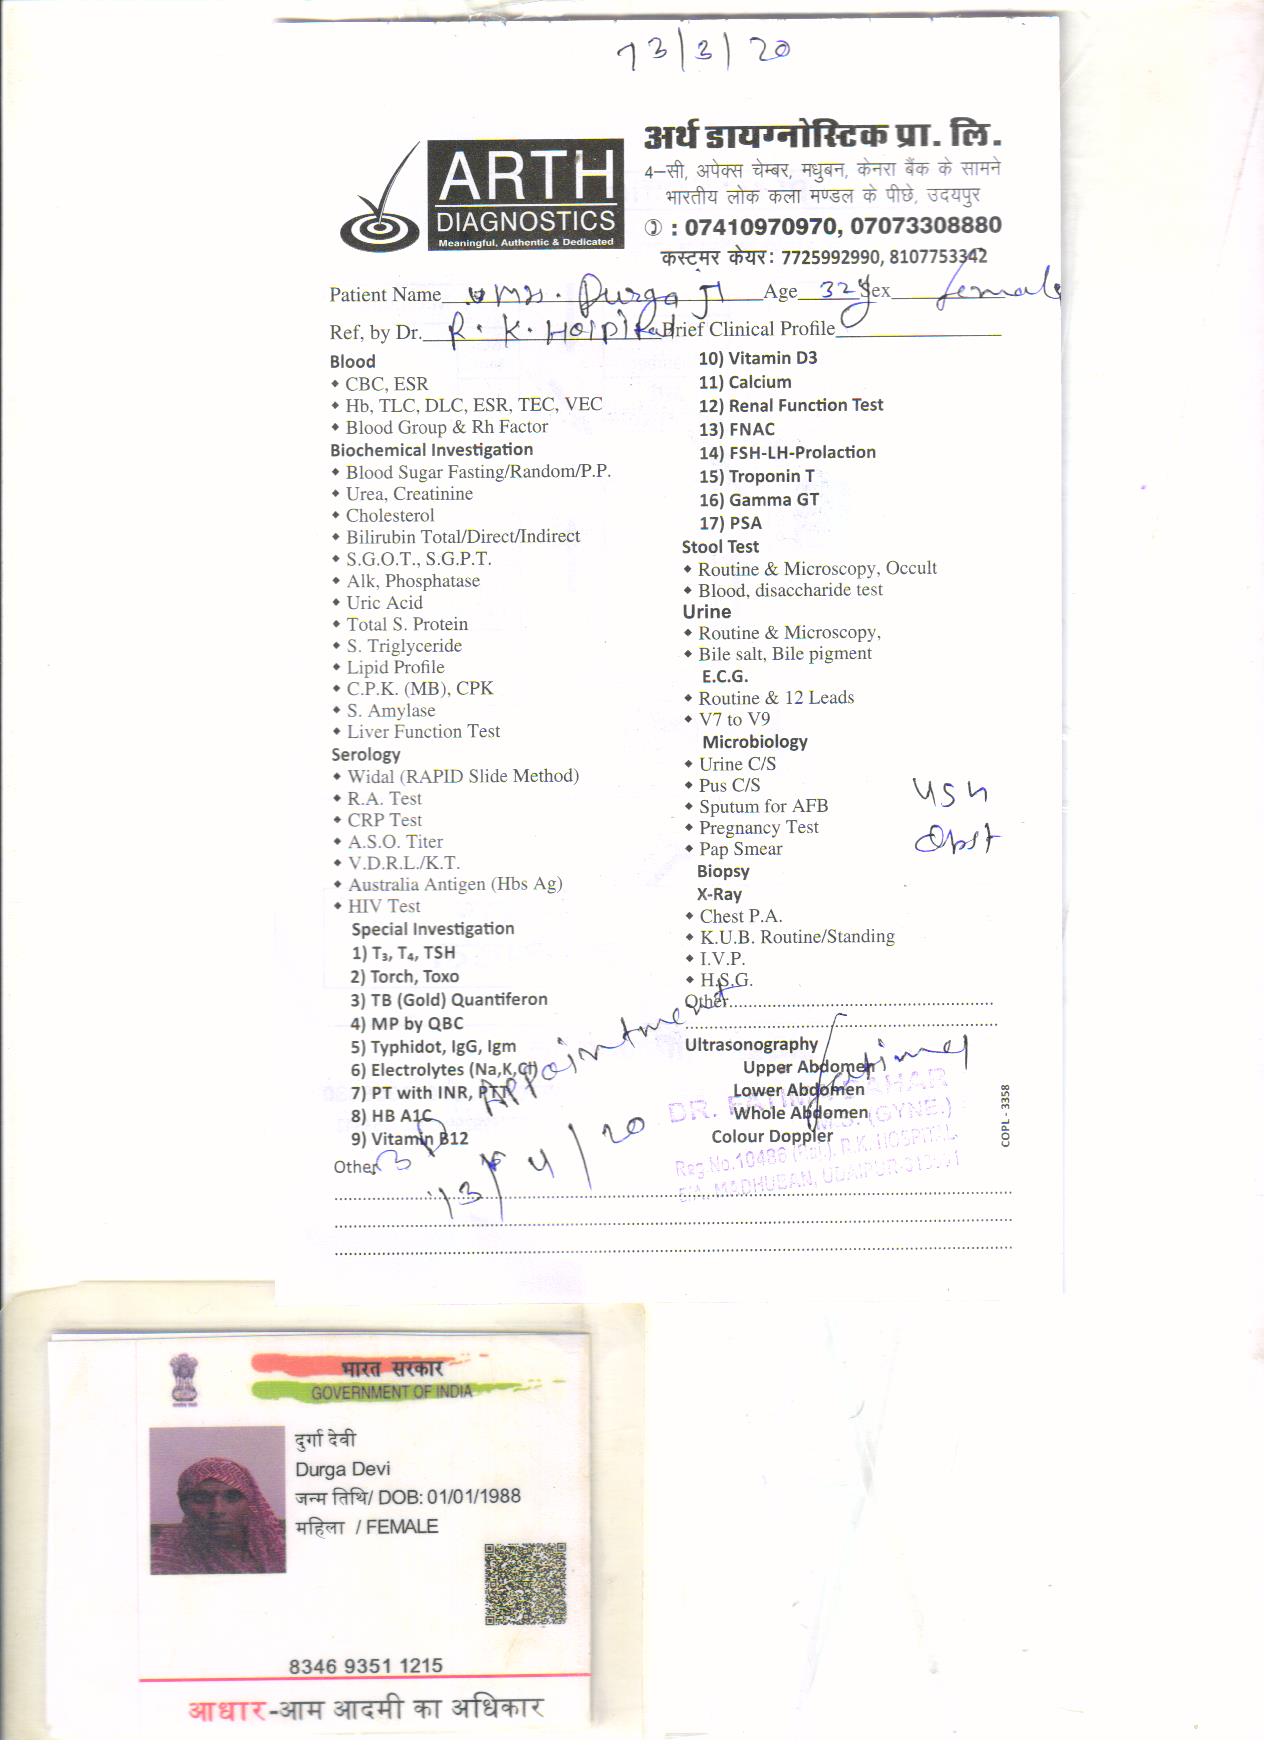 13/3/20
ARTH
DIAGNOSTICS
Meaningful, Authentic & Dedicated
अर्थ डायग्नोस्टिक प्रा. लि.
4–सी, अपेक्स चेम्बर, मधुबन, केनरा बैंक के सामने
भारतीय लोक कला मण्डल के पीछे, उदयपुर
: 07410970970, 07073308880
कस्टमर केयर: 7725992990, 8107753342
Patient Name Mrs. Durga Ji Age 32y Sex female
Ref, by Dr. R. K. Hospital Brief Clinical Profile
Blood
CBC, ESR
Hb, TLC, DLC, ESR, TEC, VEC
Blood Group & Rh Factor
Biochemical Investigation
Blood Sugar Fasting/Random/P.P.
Urea, Creatinine
Cholesterol
Bilirubin Total/Direct/Indirect
S.G.O.T., S.G.P.T.
Alk, Phosphatase
Uric Acid
Total S. Protein
S. Triglyceride
Lipid Profile
C.P.K. (MB), CPK
S. Amylase
Liver Function Test
Serology
Widal (RAPID Slide Method)
R.A. Test
CRP Test
A.S.O. Titer
V.D.R.L./K.T.
Australia Antigen (Hbs Ag)
HIV Test
Special Investigation
1) T₃, T₄, TSH
2) Torch, Toxo
3) TB (Gold) Quantiferon
4) MP by QBC
5) Typhidot, IgG, Igm
6) Electrolytes (Na,K,Cl)
7) PT with INR, PTT
8) HB A1C
9) Vitamin B12
Other
10) Vitamin D3
11) Calcium
12) Renal Function Test
13) FNAC
14) FSH-LH-Prolaction
15) Troponin T
16) Gamma GT
17) PSA
Stool Test
Routine & Microscopy, Occult
Blood, disaccharide test
Urine
Routine & Microscopy,
Bile salt, Bile pigment
E.C.G.
Routine & 12 Leads
V7 to V9
Microbiology
Urine C/S
Pus C/S
Sputum for AFB
Pregnancy Test
Pap Smear
Biopsy
X-Ray
Chest P.A.
K.U.B. Routine/Standing
I.V.P.
H.S.G.
Other
Ultrasonography
Upper Abdomen
Lower Abdomen
Whole Abdomen
Colour Doppler
USG
Obst
Appointment
13/4/20
M.S. (GYNE.)
Reg.No.10486 (Raj.), R.K. HOSPITAL
MADHUBAN, UDAIPUR-313001
COPL - 3358
भारत सरकार
GOVERNMENT OF INDIA
दुर्गा देवी
Durga Devi
जन्म तिथि/ DOB: 01/01/1988
महिला / FEMALE
8346 9351 1215
आधार-आम आदमी का अधिकार